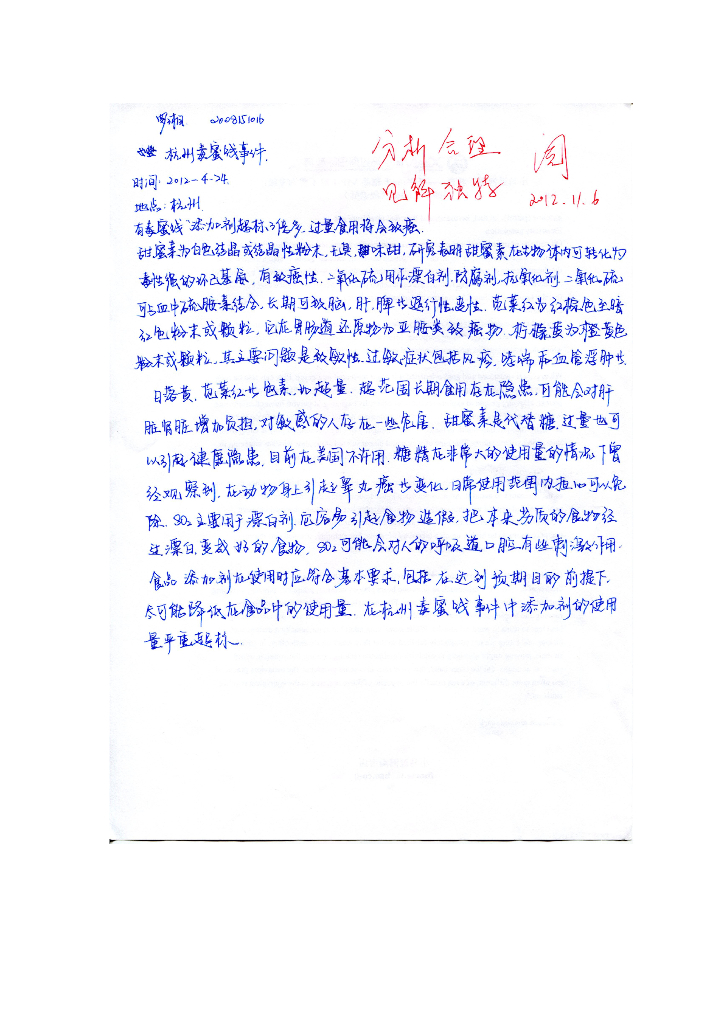 罗湘 2008151016
杭州毒蜜饯事件.
时间: 2012-4-24.
地点: 杭州.
分析合理
见解独特
阅
2012.11.6
有毒蜜饯"添加剂超标3倍多.过量食用将会致癌.
甜蜜素为白色结晶或结晶性粉末,无臭,味甜,研究表明甜蜜素在动物体内可转化为
毒性强的环己基胺,有致癌性.二氧化硫用作漂白剂.防腐剂,抗氧化剂.二氧化硫
可与血中硫胺素结合,长期可致脑,肝,脾步退行性变性.苋菜红为红棕色至暗
红色粉末或颗粒,它在胃肠道还原物为亚胺类致癌物.柠檬黄为橙黄色
粉末或颗粒,其主要问题是致敏性.过敏症状包括风疹,哮喘和血管浮肿步
日落黄,苋菜红步色素,如超量.超范围长期食用存在隐患,可能会对肝
脏肾脏增加负担,对敏感的人存在一些危害.甜蜜素是代替糖,过量也可
以引起健康隐患,目前在美国不许用.糖精在非常大的使用量的情况下曾
经观察到,在动物身上引起睾丸癌步变化,日常使用范围内担心可以免
除.SO₂主要用于漂白剂.它容易引起食物造假,把本来劣质的食物经
过漂白变成好的食物,SO₂可能会对人的呼吸道口腔有些刺激作用.
食品添加剂在使用时应符合基本要求,包括在达到预期目的前提下,
尽可能降低在食品中的使用量.在杭州毒蜜饯事件中添加剂的使用
量严重超标.